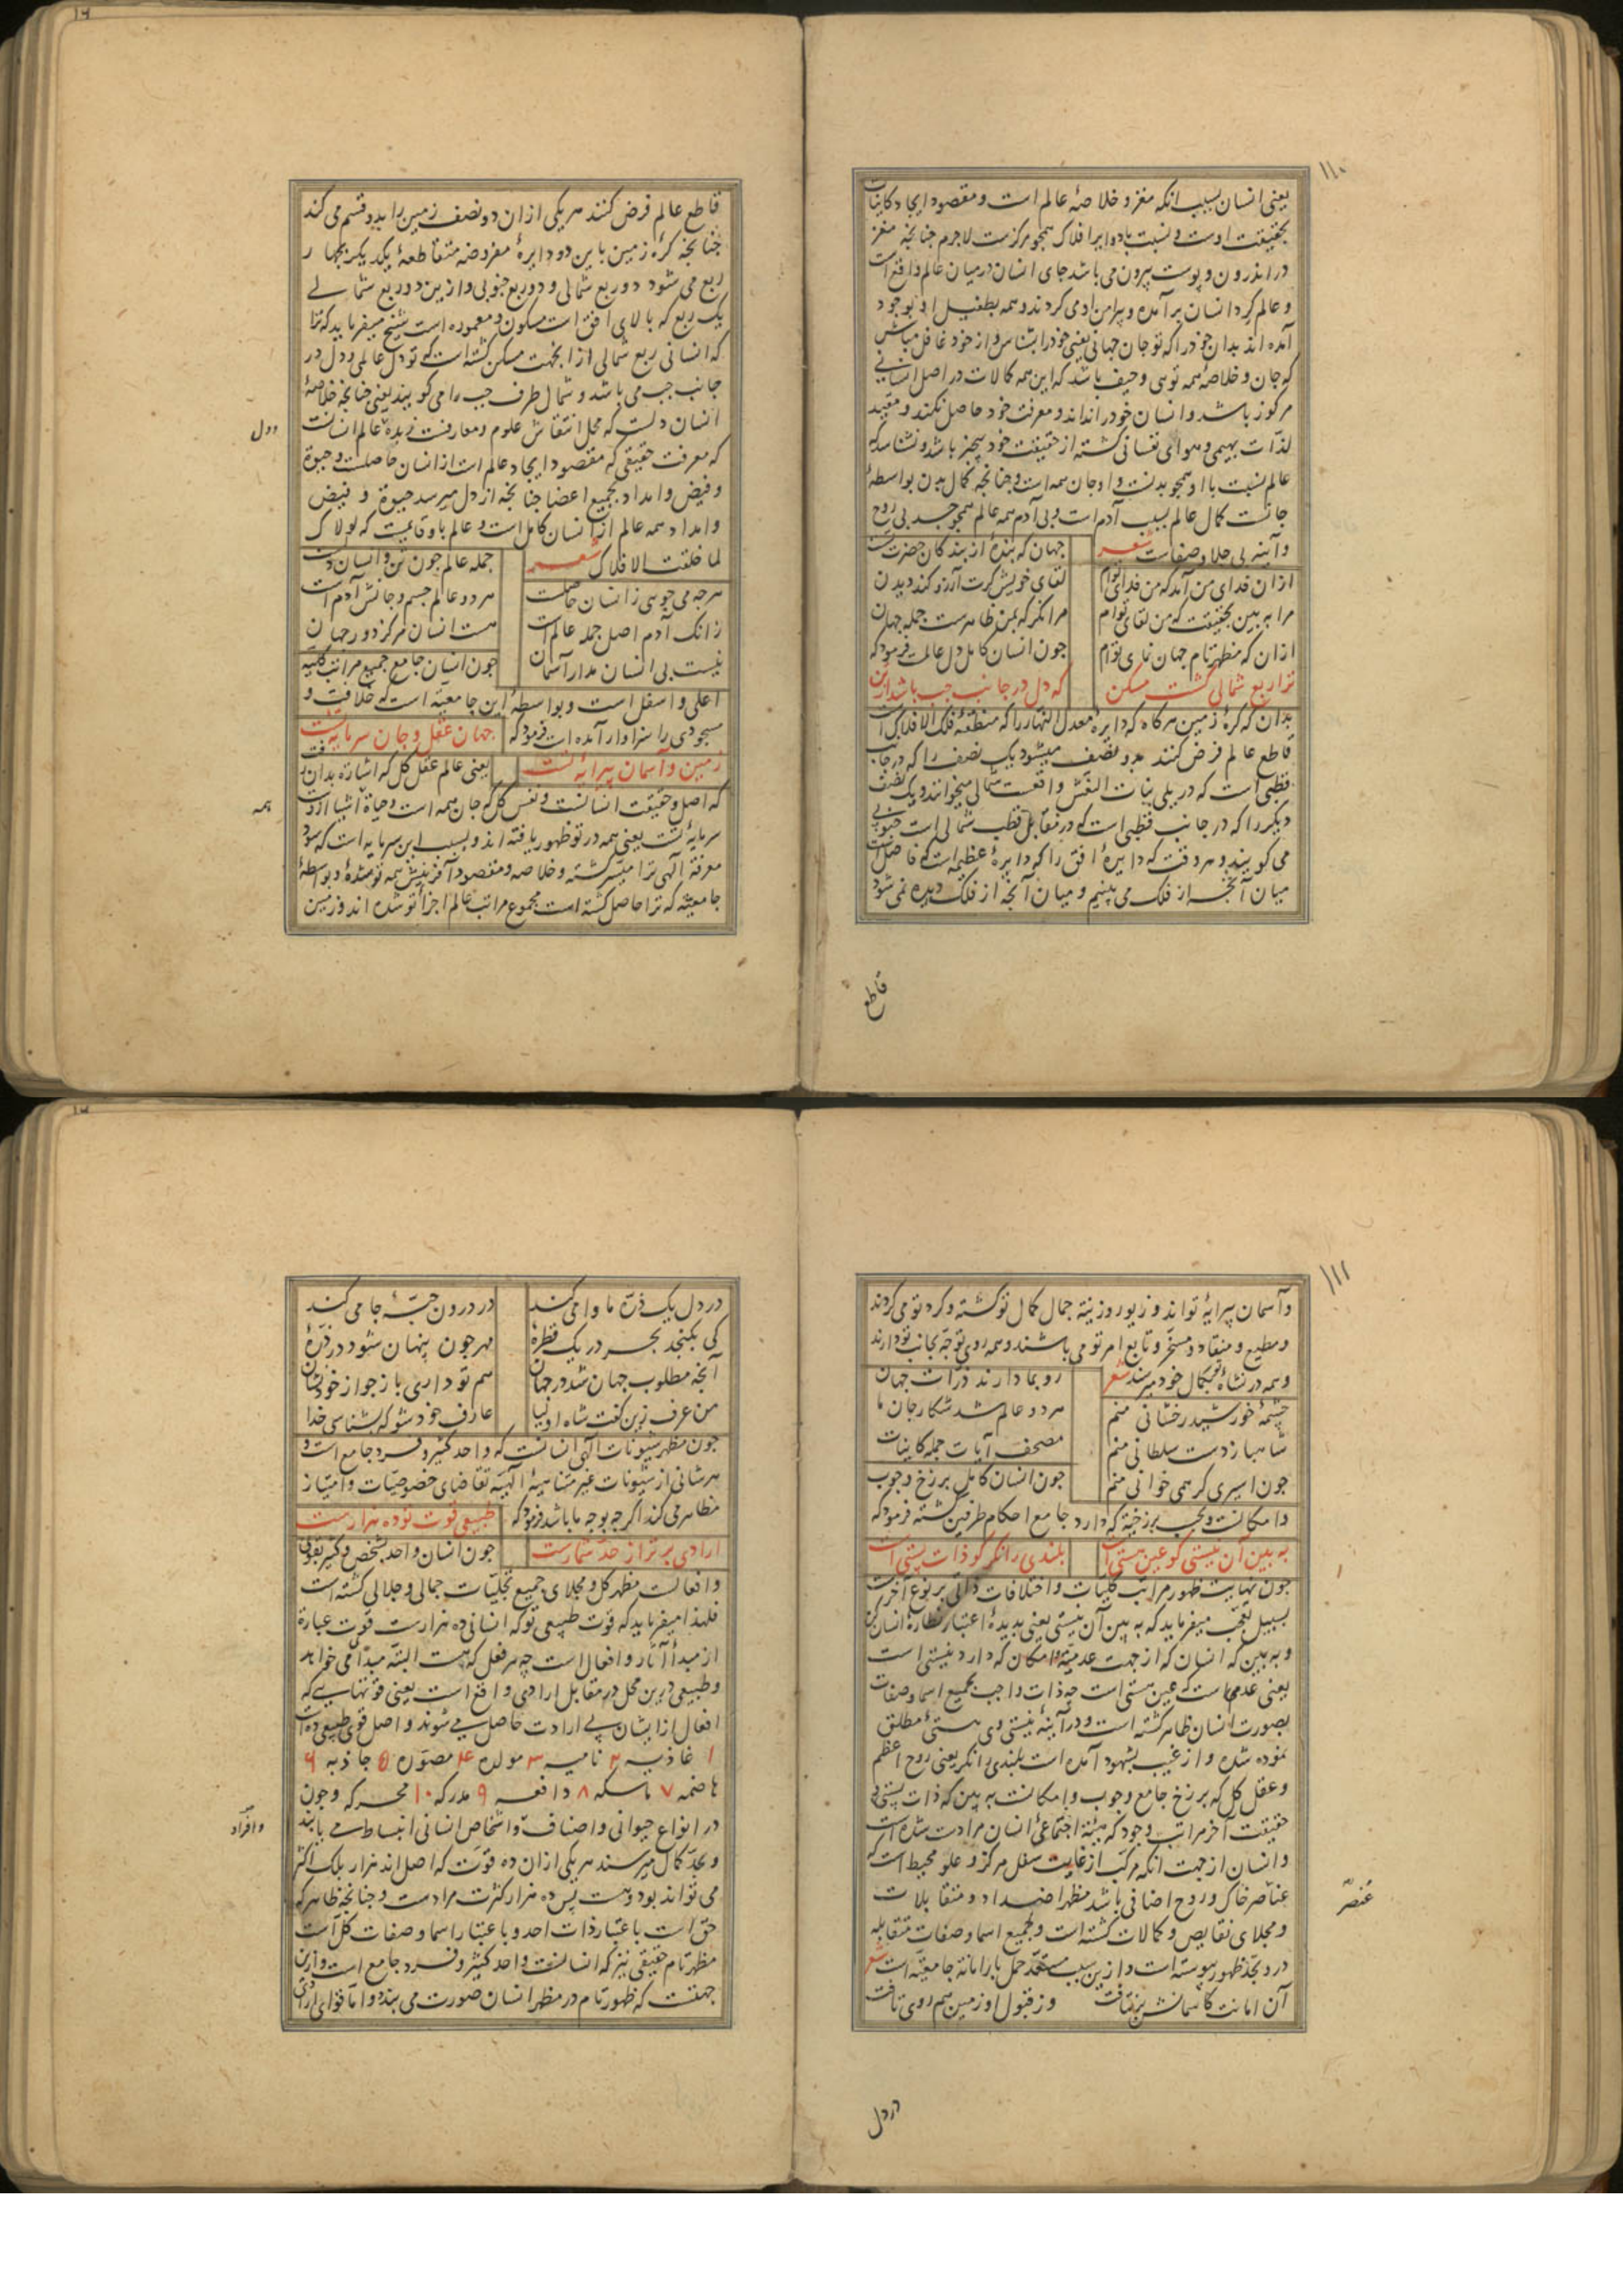 ۱۱۰
یعنی انسان بسبب آنکه مغز و خلاصهٔ عالم است و مقصود ایجاد کاینات
بحقیقت اوست و نسبت با دوایر افلاک همچو مرکزست لاجرم چنانچه مغز
در اندرون و پوست بیرون می باشد جای انسان در میان عالم واقع است
و عالم گرد انسان بر آمده و پیرامن او می گردند و همه بطفیل او بوجود
آمده اند بدان خود را که تو جان جهانی یعنی خود را بشناس و از خود غافل مباش
که جان و خلاصهٔ همه تویی و حیف باشد که این همه کمالات در اصل انسانی
مرکوز باشد و انسان خود را نداند و معرفت خود حاصل نکند و مقید
لذات بهیمی و هوای نفسانی گشته از حقیقت خود بیخبر باشد و نشناسد که
عالم نسبت با او همچو بدنست و او جان همه است و چنانچه کمال بدن بواسطهٔ
جانست کمال عالم بسبب آدم است و بی آدم همه عالم همچو جسد بی روح
و آینه بی جلا و صفاست شعر جهان که بنده از بندگان حضرت
ازان فدای من آمد که من فدای توام لقای خویش گرت آرزو کند دیدن
مرا به بین بحقیقت که من لقای توام مرا نگر که بمن ظاهرست جمله جهان
ازان که مظهر تام جهان نمای توام چون انسان کامل دل عالمست فرمود که
ترا ربع شمالی گشت مسکن که دل در جانب چپ باشد از تن
بدان که کرهٔ زمین هرگاه که دایرهٔ معدل النهار را که منطقهٔ فلک الافلاک است
قاطع عالم فرض کنند بدو نصف میشود یک نصف را که در جانب
قطبی است که در یلی بنات النعش واقعست شمالی میخوانند و یک نصف
دیگر را که در جانب قطبی است که در مقابل قطب شمالی است جنوبی
می گویند و هر وقت که دایرهٔ افق را که دایرهٔ عظیمه است که فاصل است
میان آنچه از فلک می بینیم و میان آنچه از فلک دیده نمی شود
قاطع
قاطع عالم فرض کنند هر یکی ازان دو نصف زمین را بدو قسم می کند
چنانچه کرهٔ زمین باین دو دایرهٔ مفروضه متقاطعهٔ یکدیگر بچهار
ربع می شود دو ربع شمالی و دو ربع جنوبی و ازین دو ربع شمالی
یک ربع که بالای افق است مسکون و معموره است شیخ میفرماید که ترا
که انسانی ربع شمالی ازانجهت مسکن گشته است که تو دل عالمی و دل در
جانب چپ می باشد و شمال طرف چپ را می گویند یعنی چنانچه خلاصهٔ
انسان دلست که محل انتقاش علوم و معارفست زبدهٔ عالم انسانست
که معرفت حقیقی که مقصود ایجاد عالم است از انسان حاصلست و حیوة
و فیض و امداد بجمیع اعضا چنانچه از دل میرسد حیوة و فیض
و امداد همه عالم از انسان کامل است و عالم باو قایمست که لولاک
لما خلقت الافلاک شعر جمله عالم چون تن و انسان دلست
هرچه می جویی ز انسان حاصلست هر دو عالم جسم و جانش آدم است
زانک آدم اصل جمله عالم است هست انسان مرکز دور جهان
نیست بی انسان مدار آسمان چون انسان جامع جمیع مراتب کلیه
اعلی و اسفل است و بواسطهٔ این جامعیة است که خلافت و
مسجودی را سزاوار آمده است فرمود که جهان عقل و جان سرمایهٔ تست
زمین و آسمان پیرایهٔ تست یعنی عالم عقل کل که اشاره بدان رفت
که اصل و حقیقت انسانست و نفس کل که جان همه است و حیاة اشیا ازوست
سرمایهٔ تست یعنی همه در تو ظهور یافته اند و بسبب این سرمایه است که سود
معرفة الهی ترا میسر گشته و خلاصه و مقصود آفرینش همه تو شدهٔ و بواسطهٔ
جامعیة که ترا حاصل گشته است مجموع مراتب عالم اجزا تو شده اند و زمین
دل
همه
۱۱۱
و آسمان پیرایهٔ تو اند و زیور و زینة جمال کمال تو گشته و گرد تو می گردند
و مطیع و منقاد و مسخر و تابع امر تو می باشند و همه روی توجه بجانب تو دارند
و همه در نشاهٔ تو بکمال خود میرسند شعر رو بما دارند ذرات جهان
چشمهٔ خورشید رخشانی منم هر دو عالم شد شکار جان ما
شاهباز دست سلطانی منم مصحف آیات جمله کاینات
چون اسیری گر همی خوانی منم چون انسان کامل برزخ وجوب
و امکانست و بحسب برزخیة که دارد جامع احکام طرفین گشته فرمود که
به بین آن نیستی کو عین هستی است بلندی را نگر کو ذات پستی است
چون نهایت ظهور مراتب کلیات و اختلافات ذاتی بر نوع آخرست
بسبیل تعجب میفرماید که به بین آن نیستی یعنی بدیدهٔ اعتبار نظاره انسان کن
و به بین که انسان که از جهت عدمیة و امکان که دارد نیستی است
یعنی عدم است که عین هستی است چه ذات واجب بجمیع اسما و صفات
بصورت انسان ظاهر گشته است و در آینهٔ نیستی وی هستی مطلق
نموده شده و از غیب بشهود آمده است بلندی را نگر یعنی روح اعظم
و عقل کل که برزخ جامع وجوب و امکانست به بین که ذات پستی
حقیقت آخر مراتب وجود که هیئة اجتماعی انسان مرادست شده است
و انسان از جهت آنکه مرکب از غایت سفل مرکز و علو محیط است که
عناصر خاک و روح اضافی باشد مظهر اضداد و متقابلات
و مجلای نقایص و کمالات گشته است و بجمیع اسما و صفات متقابله
درو بحد ظهور پیوسته است و ازین سبب مستعد حمل بار امانة جامعیة است شعر
آن امانت کآسمانش بر نتافت وز قبول او زمین هم روی تافت
عنصر
در دل
در دل یک ذره ما وا می کند در درون حبّهٔ جا می کند
کی بگنجد بحر در یک قطرهٔ مهر چون پنهان شود در ذرهٔ
آنچه مطلوب جهان شد در جهان هم تو داری باز جو از خود نشان
من عرف زین گفت شاه اولیا عارف خود شو که بشناسی خدا
چون مظهر شیونات الهی انسانست که واحد کثیر و فرد جامع است و
هر شانی از شیونات غیر متناهیهٔ الهیه تقاضای خصوصیات و امتیاز
مظاهر می کند اگرچه بوجه ما باشد فرمود که طبیعی قوت تو ده هزارست
ارادی برتر از حد شمارست چون انسان واحد بشخص و کثیر بقوی
و افعالست مظهر کل و مجلای جمیع تجلیات جمالی و جلالی گشته است
فلهذا میفرماید که قوت طبیعی تو که انسانی ده هزارست قوت عبارة
از مبدأ آثار و افعال است چه هر فعل که هست البته مبدأ می خواهد
و طبیعی درین محل در مقابل ارادی واقع است یعنی قوتهایی که
افعال ازایشان بی ارادت حاصل می شوند و اصل قوی طبیعی ده است
۱ غاذیه ۲ نامیه ۳ مولده ۴ مصوره ۵ جاذبه ۶
هاضمه ۷ ماسکه ۸ دافعه ۹ مدرکه ۱۰ محرکه و چون
در انواع حیوانی و اصناف و اشخاص انسانی انبساط می یابند
و بحد کمال میرسند هر یکی ازان ده قوت که اصل اند هزار بلک اکثر
می تواند بود و هست پس ده هزار کثرت مرادست و چنانچه ظاهر که
حق است باعتبار ذات احد و باعتبار اسما و صفات کل است
مظهر تام حقیقی نیز که انسانست واحد کثیر و فرد جامع است و ازین
جهتست که ظهور تام در مظهر انسان صورت می بندد و اما قوای ارادی
و افراد